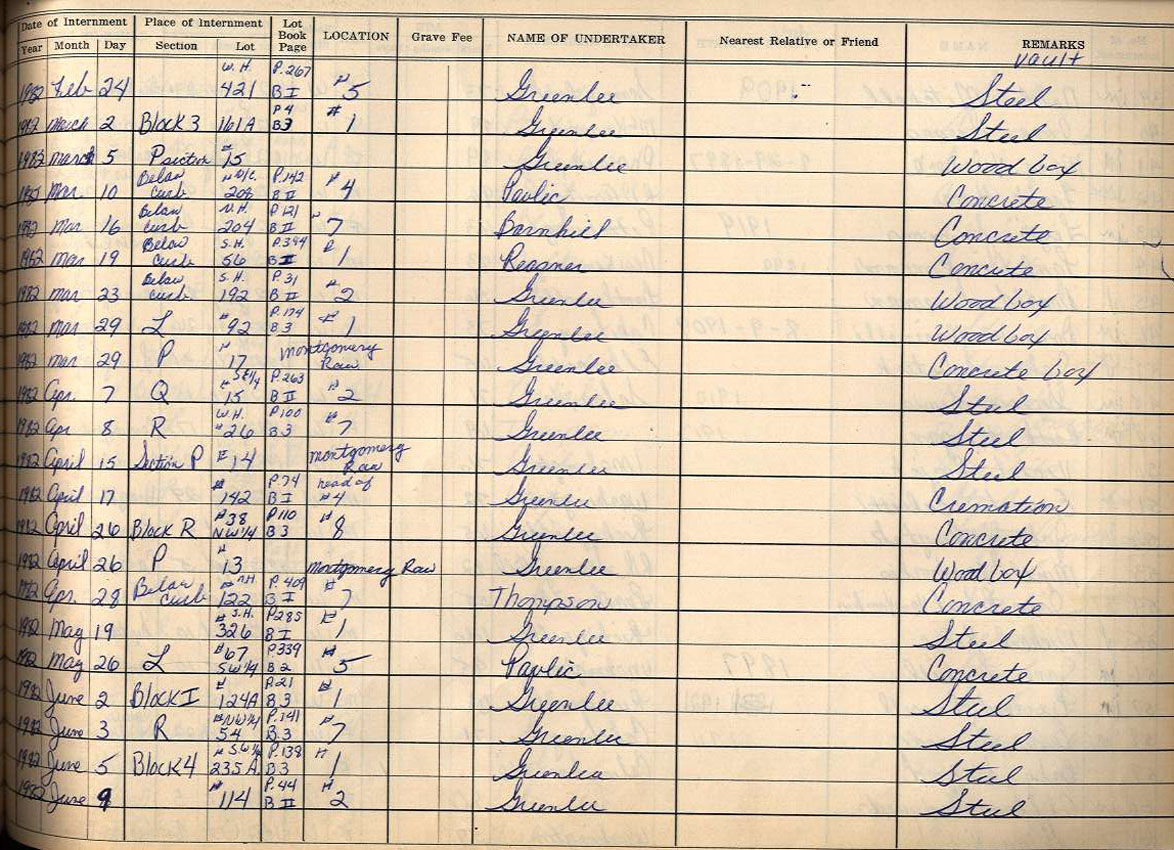 Date of Internment Place of Internment Lot Book Page LOCATION Grave Fee NAME OF UNDERTAKER Nearest Relative or Friend REMARKS
Year Month Day Section Lot vault
1982 Feb 24 W.H. 421 P.267 B I # 5 Greenlee Steel
1982 March 2 Block 3 161A P4 B3 # 1 Greenlee Steel
1982 March 5 P section # 15 Greenlee Wood box
1982 Mar. 10 Below curb 208 P.142 B II # 4 Pavlic Concrete
1982 Mar 16 Below curb N.H. 204 P121 B II 7 Barnhill Concrete
1982 Mar 19 Below curb S.H. 56 P.394 B II # 1 Reagner Concrete
1982 Mar 23 Below curb S.H. 192 P.31 B II # 2 Greenlee Wood box
1982 Mar 29 L # 92 P.174 B 3 # 1 Greenlee Wood box
1982 Mar 29 P # 17 Montgomery Row Greenlee Concrete box
1982 Apr. 7 Q # SE 1/4 15 P.263 B II # 2 Greenlee Steel
1982 Apr 8 R W.H. # 26 P100 B3 # 7 Greenlee Steel
1982 April 15 Section P # 14 Montgomery Row Greenlee Steel
1982 April 17 # 142 P74 B I head of #4 Greenlee Cremation
1982 April 26 Block R #38 NW 1/4 P110 B 3 # 8 Greenlee Concrete
1982 April 26 P # 13 Montgomery Row Greenlee Wood box
1982 Apr. 28 Below curb # NH 122 P. 409 B I # 7 Thompson Concrete
1982 May 19 # S.H. 326 P285 B I # 1 Greenlee Steel
1982 May 26 L #67 SW 1/4 P339 B 2 # 5 Pavlic Concrete
1982 June 2 Block I # 124A P21 B 3 # 1 Greenlee Steel
1982 June 3 R # NW 1/4 54 P.141 B 3 # 7 Greenlee Steel
1982 June 5 Block 4 # S.W 1/4 235 A. P.138 B 3 # 1 Greenlee Steel
1982 June 9 # 114 P.44 B II # 2 Greenlee Steel